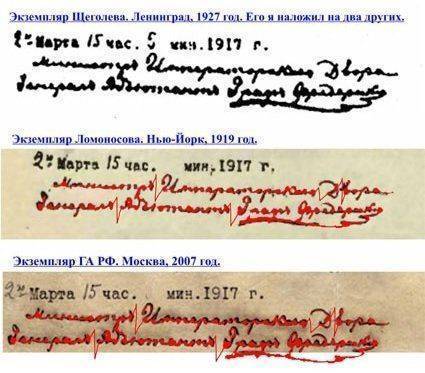 Экземпляр Щеголева. Ленинград, 1927 год. Его я наложил на два других.
2го Марта 15 час. 5 мин. 1917 г.
Министръ Императорскаго Двора
Генералъ Адъютантъ Графъ Фредериксъ
Экземпляр Ломоносова. Нью-Йорк, 1919 год.
2го Марта 15 час. мин. 1917 г.
Министръ Императорскаго Двора
Генералъ Адъютантъ Графъ Фредериксъ
Экземпляр ГА РФ. Москва, 2007 год.
2го Марта 15 час. мин. 1917 г.
Министръ Императорскаго Двора
Генералъ Адъютантъ Графъ Фредериксъ